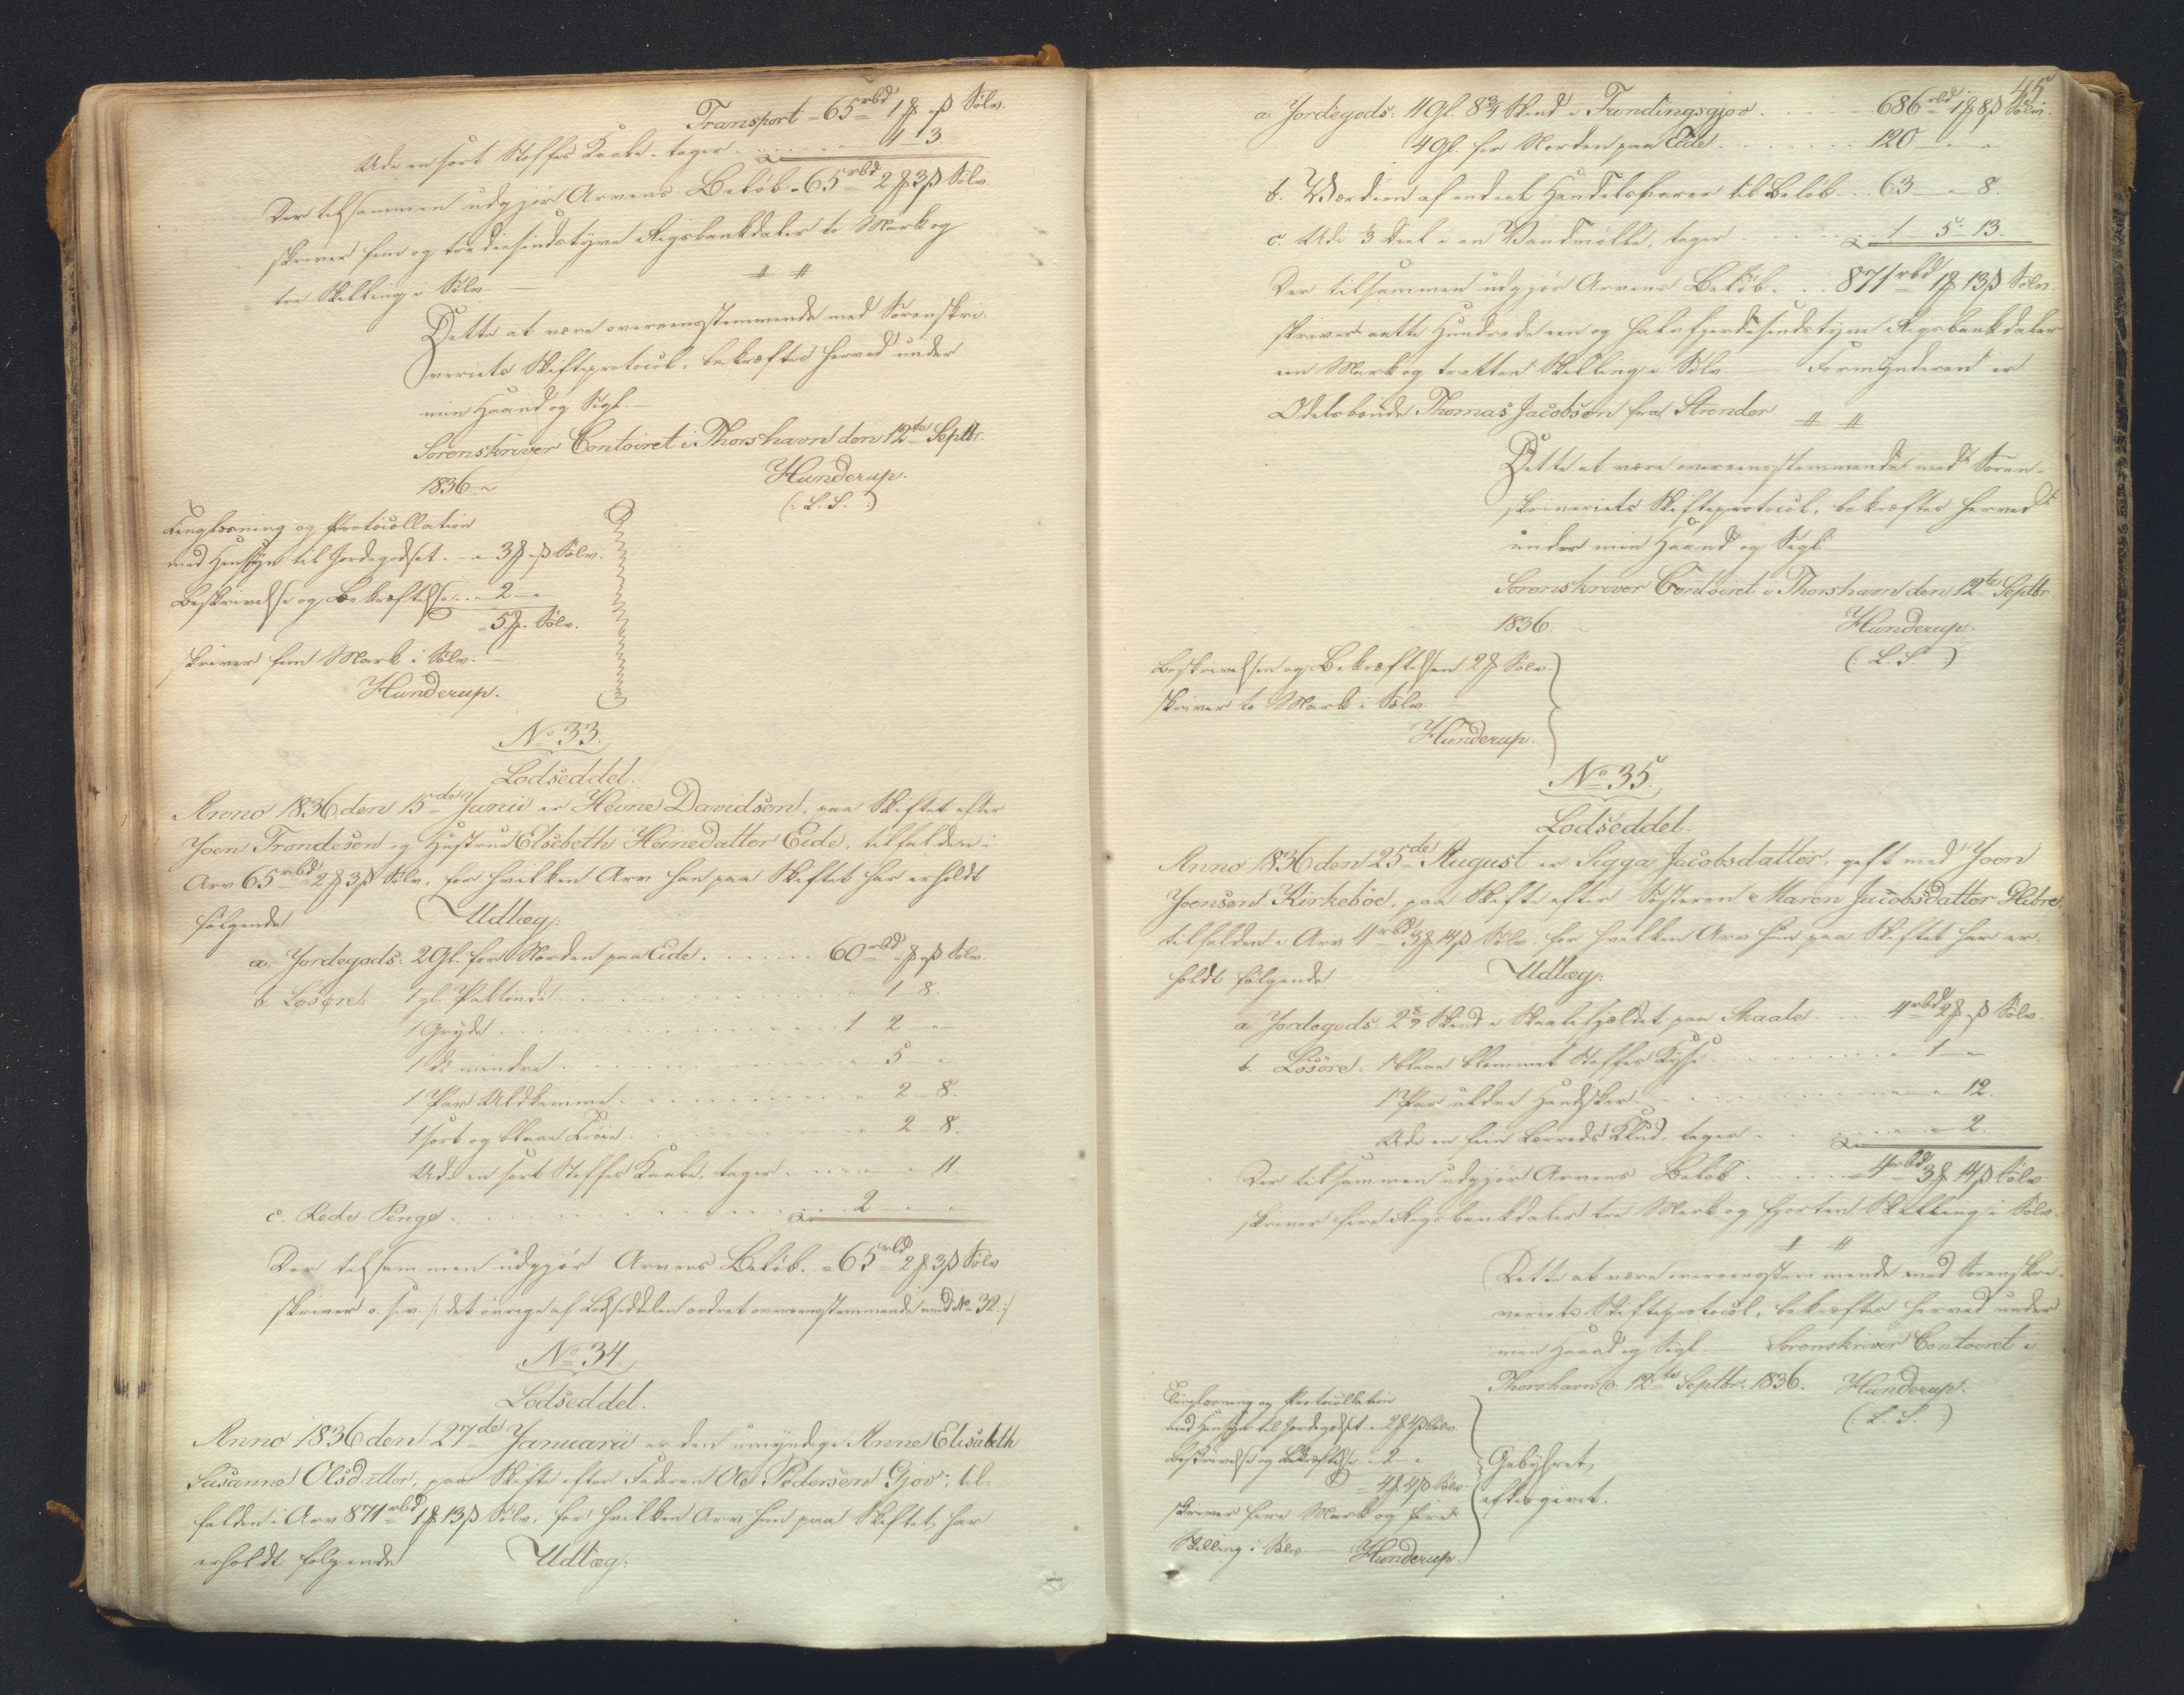 Transport - 65 rbd 1 ℳ - ß Sølv.
Udi en sort Stoffes Kaabe, tager . . . . . " 1 - 3.
Der tilsammen udgjør Arvens Beløb - 65 rbd 2 ℳ 3 ß Sølv.
skriver fem og trediesindstyve Rigsbankdaler to Mark og
tre Skilling i Sølv. — # #
Dette at være overeensstemmende med Sorenskri-
veriets Skifteprotocol, bekræftes herved under
min Haand og Segl. —
Sorenskriver Contoiret i Thorshavn den 12te Septbr.
1836. ~ Hunderup.
(: L. S. :)
Tinglæsning og Protocollation
med Hensyn til Jordegodset . - " 3 ℳ - ß Sølv.
Beskrivelse og Bekræftelse . . . " 2 - "
" 5 ℳ. Sølv.
skriver fem Mark i Sølv. —
Hunderup.
No 33.
Lodseddel.
Anno 1836 den 15de Junii er Heine Davidsen, paa Skiftet efter
Joen Trondesen og Hustrue Elsebeth Heinedatter Eide, tilfalden i
Arv 65 rbd 2 ℳ 3 ß Sølv, for hvilken Arv han paa Skiftet har erholdt
følgende Udlæg:
a. Jordegods: 2 Gl. for Norden paa Eide . . . . . . 60 rbd - ℳ - ß Sølv.
b. Løsøre: 1 gl. . . . . " 1 8.
1 Gryde . . . . . 1 2 "
1 do mindre . . . . . " 5 - "
1 Par Uldkamme . . . . . " 2 - 8.
1 sort og blaae Trøie . . . . . " 2 - 8.
Udi en sort Stoffes Kaabe, tager . . . . . " 11.
c. Rede Penge . . . . . 2 " "
Der tilsammen udgjør Arvens Beløb. - 65 rbd 2 ℳ 3 ß Sølv
skriver o. s. v. /: det øvrige af Lodseddelen ordret overeensstemmende med No 32. :/
No 34.
Lodseddel.
Anno 1836 den 27de Januarii er den umyndige Anne Elisabeth
Susanne Olsdatter, paa Skifte efter Faderen Ole Pedersen Gjov, til-
falden i Arv 871 rbd 1 ℳ 13 ß Sølv, for hvilken Arv hun paa Skiftet har
erholdt følgende Udlæg:
45
a. Jordegods: 11 Gl. 8 3/4 Skind i Fundingsgjov . . . . . 686 rbd 1 ℳ 8 ß Sølv.
4 Gl. for Norden paa Eide . . . . . . . 120 - " - "
b. Værdien af endeel Handelsvarer til Beløb . . 63 - " 8.
c. Udi 3 Deel i en Vandmølle, tager . . . . . 1 5 - 13.
Der tilsammen udgjør Arvens Beløb . . . 871 rbd 1 ℳ 13 ß Sølv.
skriver aatte Hundrede een og halvfjerdesindstyve Rigsbankdaler
een Mark og tretten Skilling i Sølv. — Formynderen er
Odelsbonde Thomas Jacobsen fra Strender # #
Dette at være overeensstemmende med Soren-
skriveriets Skifteprotocol, bekræftes herved
under min Haand og Segl.
Sorenskriver Contoiret i Thorshavn den 12te Septbr
1836. ~ Hunderup.
(: L. S. :)
Beskrivelsen og Bekræftelsen 2 ℳ Sølv.
skriver to Mark i Sølv. —
Hunderup.
No 35.
Lodseddel.
Anno 1836 den 25de August er Sigga Jacobsdatter, gift med Joen
Joensen Kirkebøe, paa Skifte efter Søsteren Maren Jacobsdatter Glibre,
tilfalden i Arv 4 rbd 3 ℳ 14 ß Sølv, for hvilken Arv hun paa Skiftet har er-
holdt følgende Udlæg:
a. Jordegods: Skind i Skaalefjeldet paa Skaale . . . 4 rbd 2 ℳ - ß Sølv.
b. Løsøre: 1 blaae blommet Stoffes Kyse . . . . . " 1 - "
1 Par uldne Handsker . . . . . " " 12.
Udi en fiin Lærreds Klud, tager . . . . . " 2.
Der tilsammen udgjør Arvens Beløb . . . . . 4 rbd 3 ℳ 14 ß Sølv
skriver fire Rigsbankdaler tre Mark og fjorten Skilling i Sølv.
# #
Dette at være overeensstemmende med Sorenskri-
veriets Skifteprotocol, bekræftes herved under
min Haand og Segl. — Sorenskriver Contoiret i
Thorshavn d. 12te Septbr. 1836. Hunderup.
(: L. S. :)
Tinglæsning og Protocollation
med Hensyn til Jordegodset " 2 ℳ 4 ß Sølv
Beskrivelse og Bekræftelse " 2 - "
" 4 ℳ 4 ß Sølv.
skriver fire Mark og fire
Skilling i Sølv. — Hunderup.
Gebyhret
eftergivet.